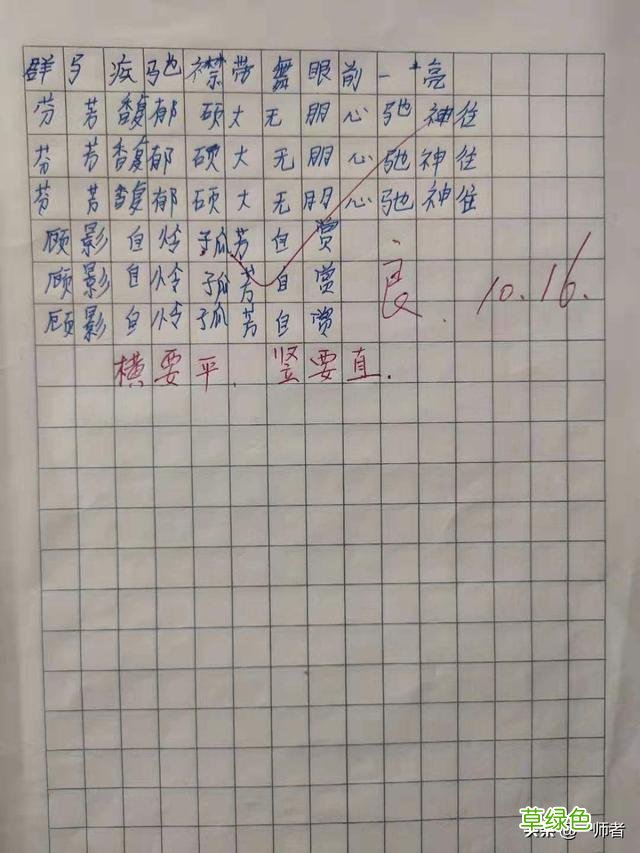 群马疾驰襟带舞眼前一亮
芬芳馥郁硕大无朋心驰神往
芬芳馥郁硕大无朋心驰神往
芬芳馥郁硕大无朋心驰神往
顾影自怜孤芳自赏
顾影自怜孤芳自赏
顾影自怜孤芳自赏
良. 10.16.
横要平. 竖要直.
草绿色
头条 @一师者